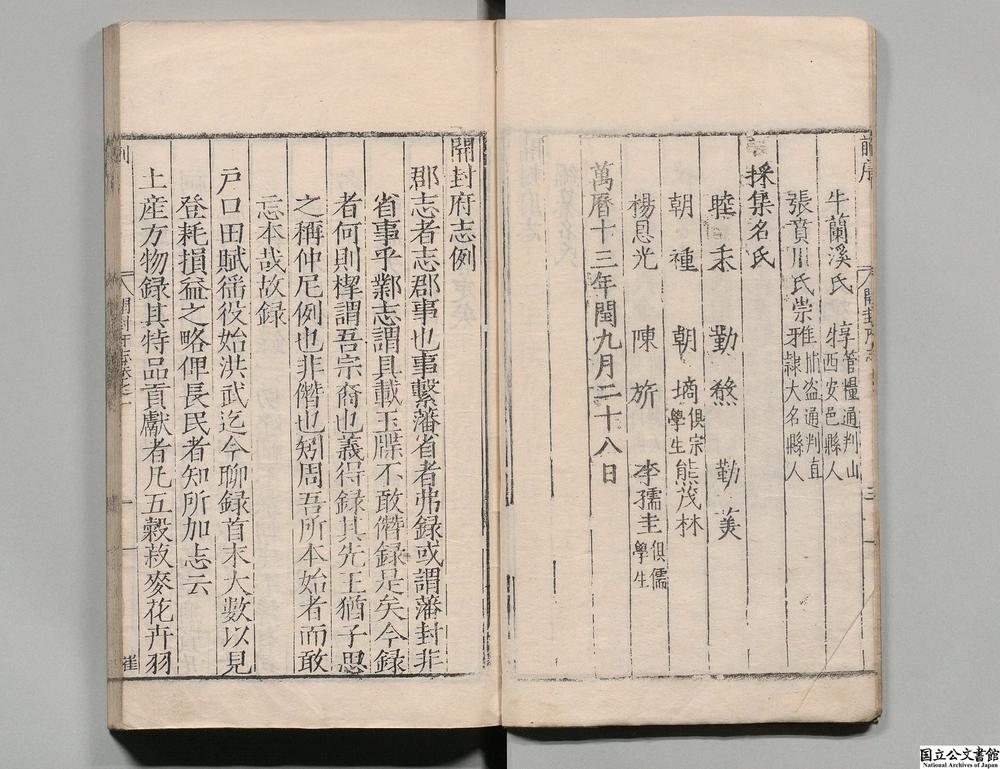 牛蘭溪氏 犉管糧通判山西安邑縣人
張賁川氏崇雅捕盗通判直隸大名縣人
採集名氏
睦耒 勤熬 勤羙
朝𡍼 朝㙜俱宗學生熊茂林
楊恩光 陳旂 李孺圭俱儒學生
萬曆十三年閏九月二十八日
開封府志例
郡志者志郡事也事繫藩省者弗録或謂藩封非
省事乎鄴志謂具載玉牒不敢僭録是矣今録
者何則檡謂吾宗裔也義得録其先王猶子思
之稱仲尼例也非僭也矧周吾所本始者而敢
忘本哉故録
戸口田賦徭役始洪武迄今聊録首末大數以見
登耗損益之略俾長民者知所加志云
土産方物録其特品貢獻者凡五穀菽麥花卉羽
開封府志卷之一
崔
国立公文書館
National Archives of Japan